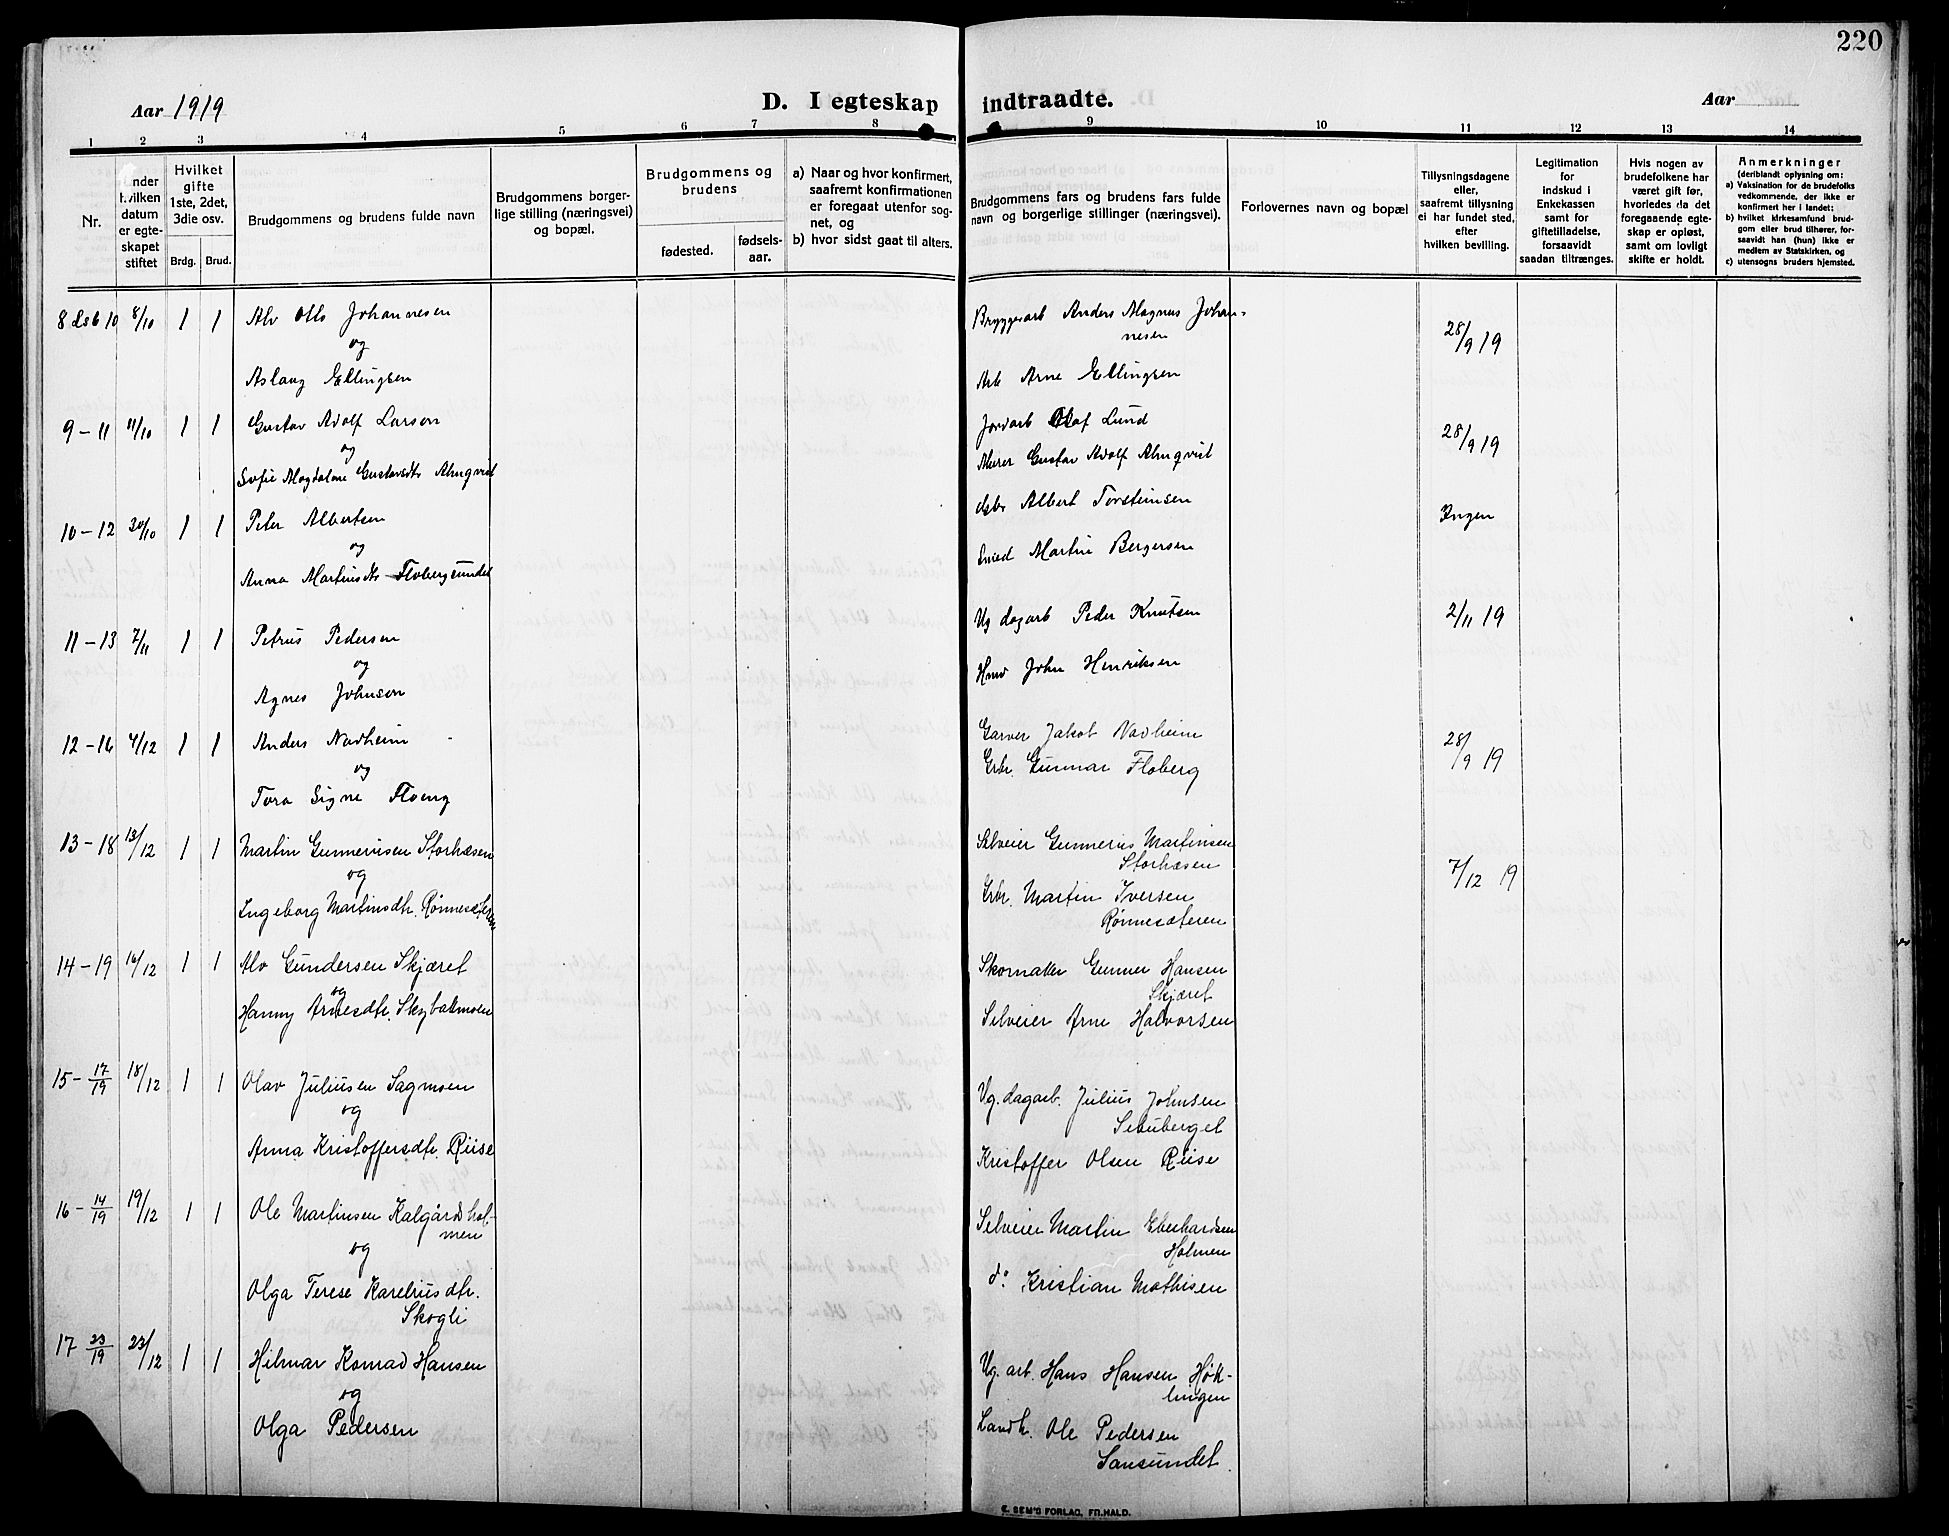 220
Aar 1919
D. I egteskap indtraadte.
Aar
1 2 3 4 5 6 7 8 9 10 11 12 13 14
Nr.
Under hvilken datum er egteskapet stiftet
Hvilket gifte 1ste, 2det, 3die osv.
Brdg. Brud.
Brudgommens og brudens fulde navn
Brudgommens borgerlige stilling (næringsvei) og bopæl.
Brudgommens og brudens
fødested.
fødselsaar.
a) Naar og hvor konfirmert, saafremt konfirmationen er foregaat utenfor sognet, og
b) hvor sidst gaat til alters.
Brudgommens fars og brudens fars fulde navn og borgerlige stillinger (næringsvei).
Forlovernes navn og bopæl
Tillysningsdagene eller, saafremt tillysning ei har fundet sted, efter hvilken bevilling.
Legitimation for indskud i Enkekassen samt for giftetilladelse, forsaavidt saadan tiltrænges.
Hvis nogen av brudefolkene har været gift før, hvorledes da det foregaaende egteskap er opløst, samt om lovligt skifte er holdt.
Anmerkninger
(deriblandt oplysning om:
a) Vaksination for de brudefolks vedkommende, der ikke er konfirmert her i landet;
b) hvilket kirkesamfund brudgom eller brud tilhører, forsaavidt han (hun) ikke er medlem av Statskirken, og
c) utensogns bruders hjemsted.
8 dsb 10 8/10 1 1 Alv Otto Johannesen
og
Aslaug Ellingsen
Bryggearb Anders Magnus Johannesen
Arb Arne Ellingsen
28/9 19
9 - 11 11/10 1 1 Gustav Adolf Larsen
og
Sofie Magdalene Gustavsdtr Almqvist
Jordarb Olaf Lund
Murer Gustav Adolf Almqvist
28/9 19
10 - 12 20/10 1 1 Peter Albertsen
og
Anna Martinsdtr Flobergsundet
Albert Torsteinsen
Smed Martin Bergersen
Ingen
11 - 13 7/11 1 1 Petrus Pedersen
og
Agnes Johnsen
Ug dagarb Peder Knutsen
Hmd John Henriksen
2/11 19
12 - 16 4/12 1 1 Anders Nadheim
og
Tora Signe Floberg
Garver Jakob Nadheim
Grbr. Gunnar Floberg
28/9 19
13 - 18 13/12 1 1 Martin Gunneriusen Storhæsen
og
Ingeborg Martinsdtr. Rønnesæteren
Selveier Gunnerius Martinsen
Storhæsen
Grbr. Martin Iversen
Rønnesæteren
7/12 19
14 - 19 16/12 1 1 Alv Gundersen Skjæret
og
Hanny Arnesdtr. Skybakmoen
Skomaker Gunner Hansen
Skjæret
Selveier Arne Halvorsen
15 - 17/19 18/12 1 1 Olav Juliusen Sagmoen
og
Anna Kristoffersdtr. Riise
Ug. dagarb. Julius Johnsen
Seiuberget
Kristoffer Olsen Riise
16 - 14/19 19/12 1 1 Ole Martinsen Kalgårdsholmen
og
Olga Terese Kareliusdtr.
Skogli
Selveier Martin Eberhardsen
Holmen
do Kristian Mathisen
17 23/19 23/12 1 1 Hilmar Konrad Hansen
og
Olga Pedersen
Ug. arb. Hans Hansen Høklingen
Landh. Ole Pedersen
Sansundet
E. SEM'S FORLAG, FR.HALD.